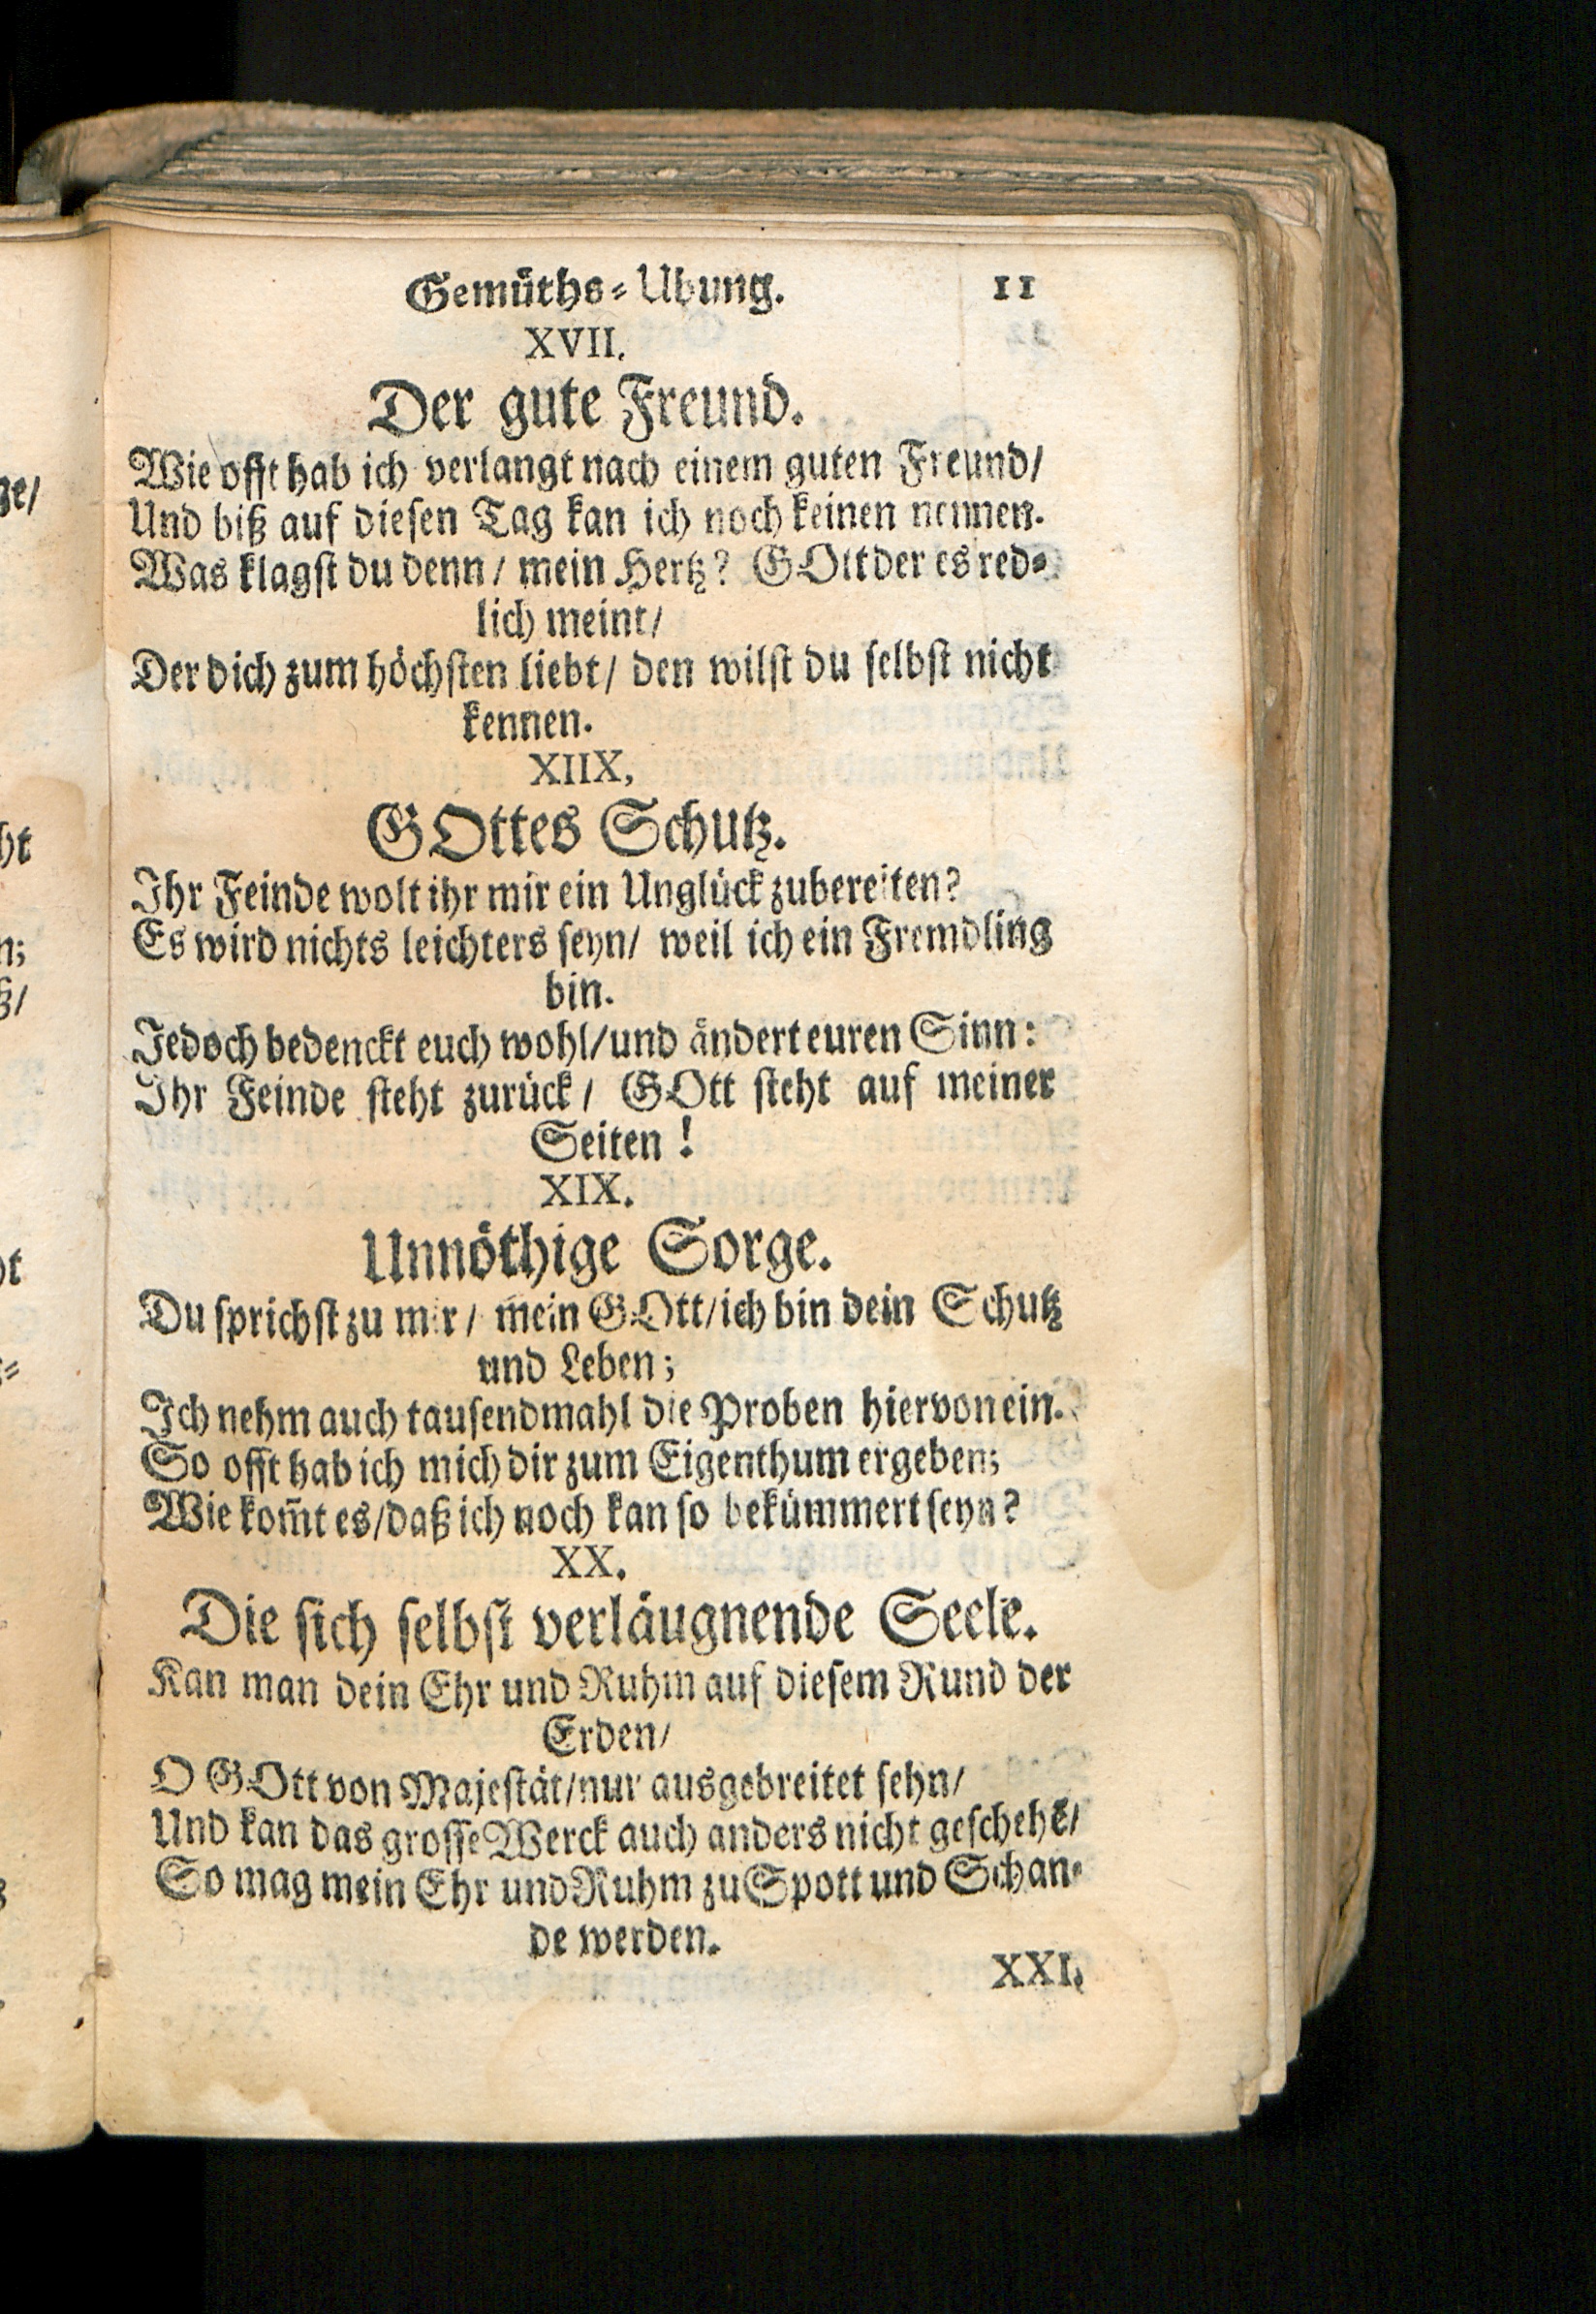 Gemüths-Ubung. 11
XVII.
Der gute Freund.
Wie offt hab ich verlangt nach einem guten Freund/
Und biß auf diesen Tag kan ich noch keinen nennen.
Was klagst du denn/ mein Hertz? GOtt der es red-
lich meint/
Der dich zum höchsten liebt/ den wilst du selbst nicht
kennen.
XIIX,
GOttes Schutz.
Ihr Feinde wolt ihr mir ein Unglück zubereiten?
Es wird nichts leichters seyn/ weil ich ein Fremdling
bin.
Jedoch bedenckt euch wohl/und ändert euren Sinn:
Ihr Feinde steht zurück/ GOtt steht auf meiner
Seiten!
XIX.
Unnöthige Sorge.
Du sprichst zu mir/ mein GOtt/ich bin dein Schutz
und Leben;
Ich nehm auch tausendmahl die Proben hiervon ein.
So offt hab ich mich dir zum Eigenthum ergeben;
Wie kom̃t es/daß ich noch kan so bekümmert seyn?
XX.
Die sich selbst verläugnende Seele.
Kan man dein Ehr und Ruhm auf diesem Rund der
Erden/
O GOtt von Majestät/nur ausgebreitet sehn/
Und kan das grosse Werck auch anders nicht geschehẽ/
So mag mein Ehr und Ruhm zu Spott und Schan-
de werden.
XXI,